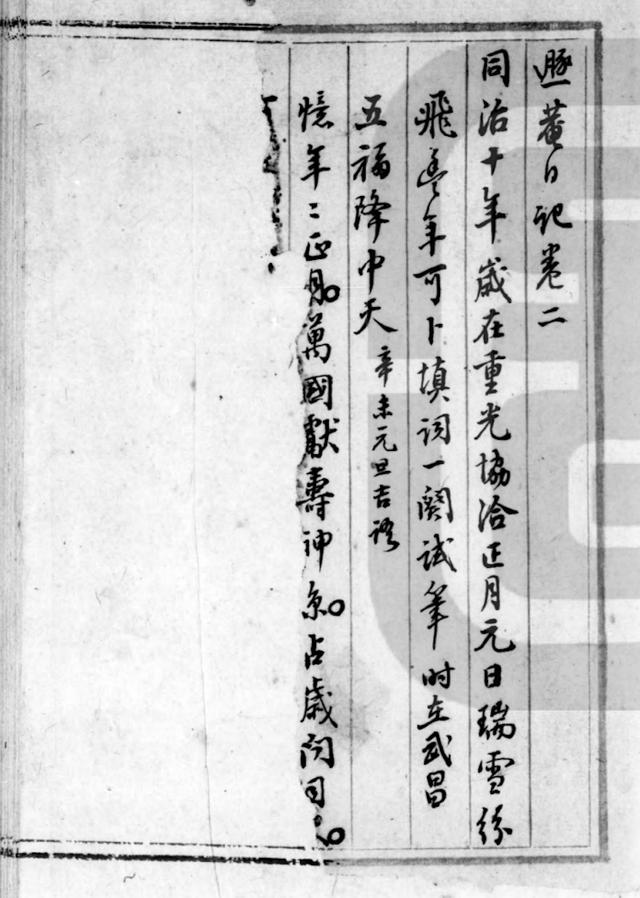 遯菴日記卷二
同治十年歲在重光協洽正月元日瑞雪紛
飛豐年可卜填詞一闋試筆時在武昌
五福降中天 辛未元旦吉語
憶年〻正月。萬國獻壽神京。占歲